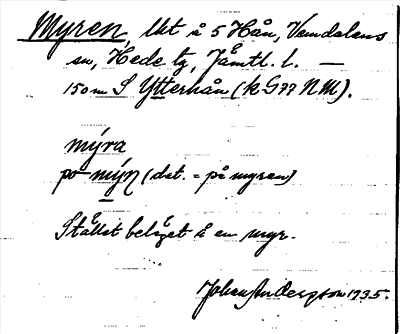 Myren, lht å 5 Hån, Vemdalens
sn, Hede tg, Jämtl. l. —
150 m S Ytterhån (k G77 NM).
mýra
po mýn (dat. = på myren)
Stället beläget å en myr.
Johan Anderson 1935.